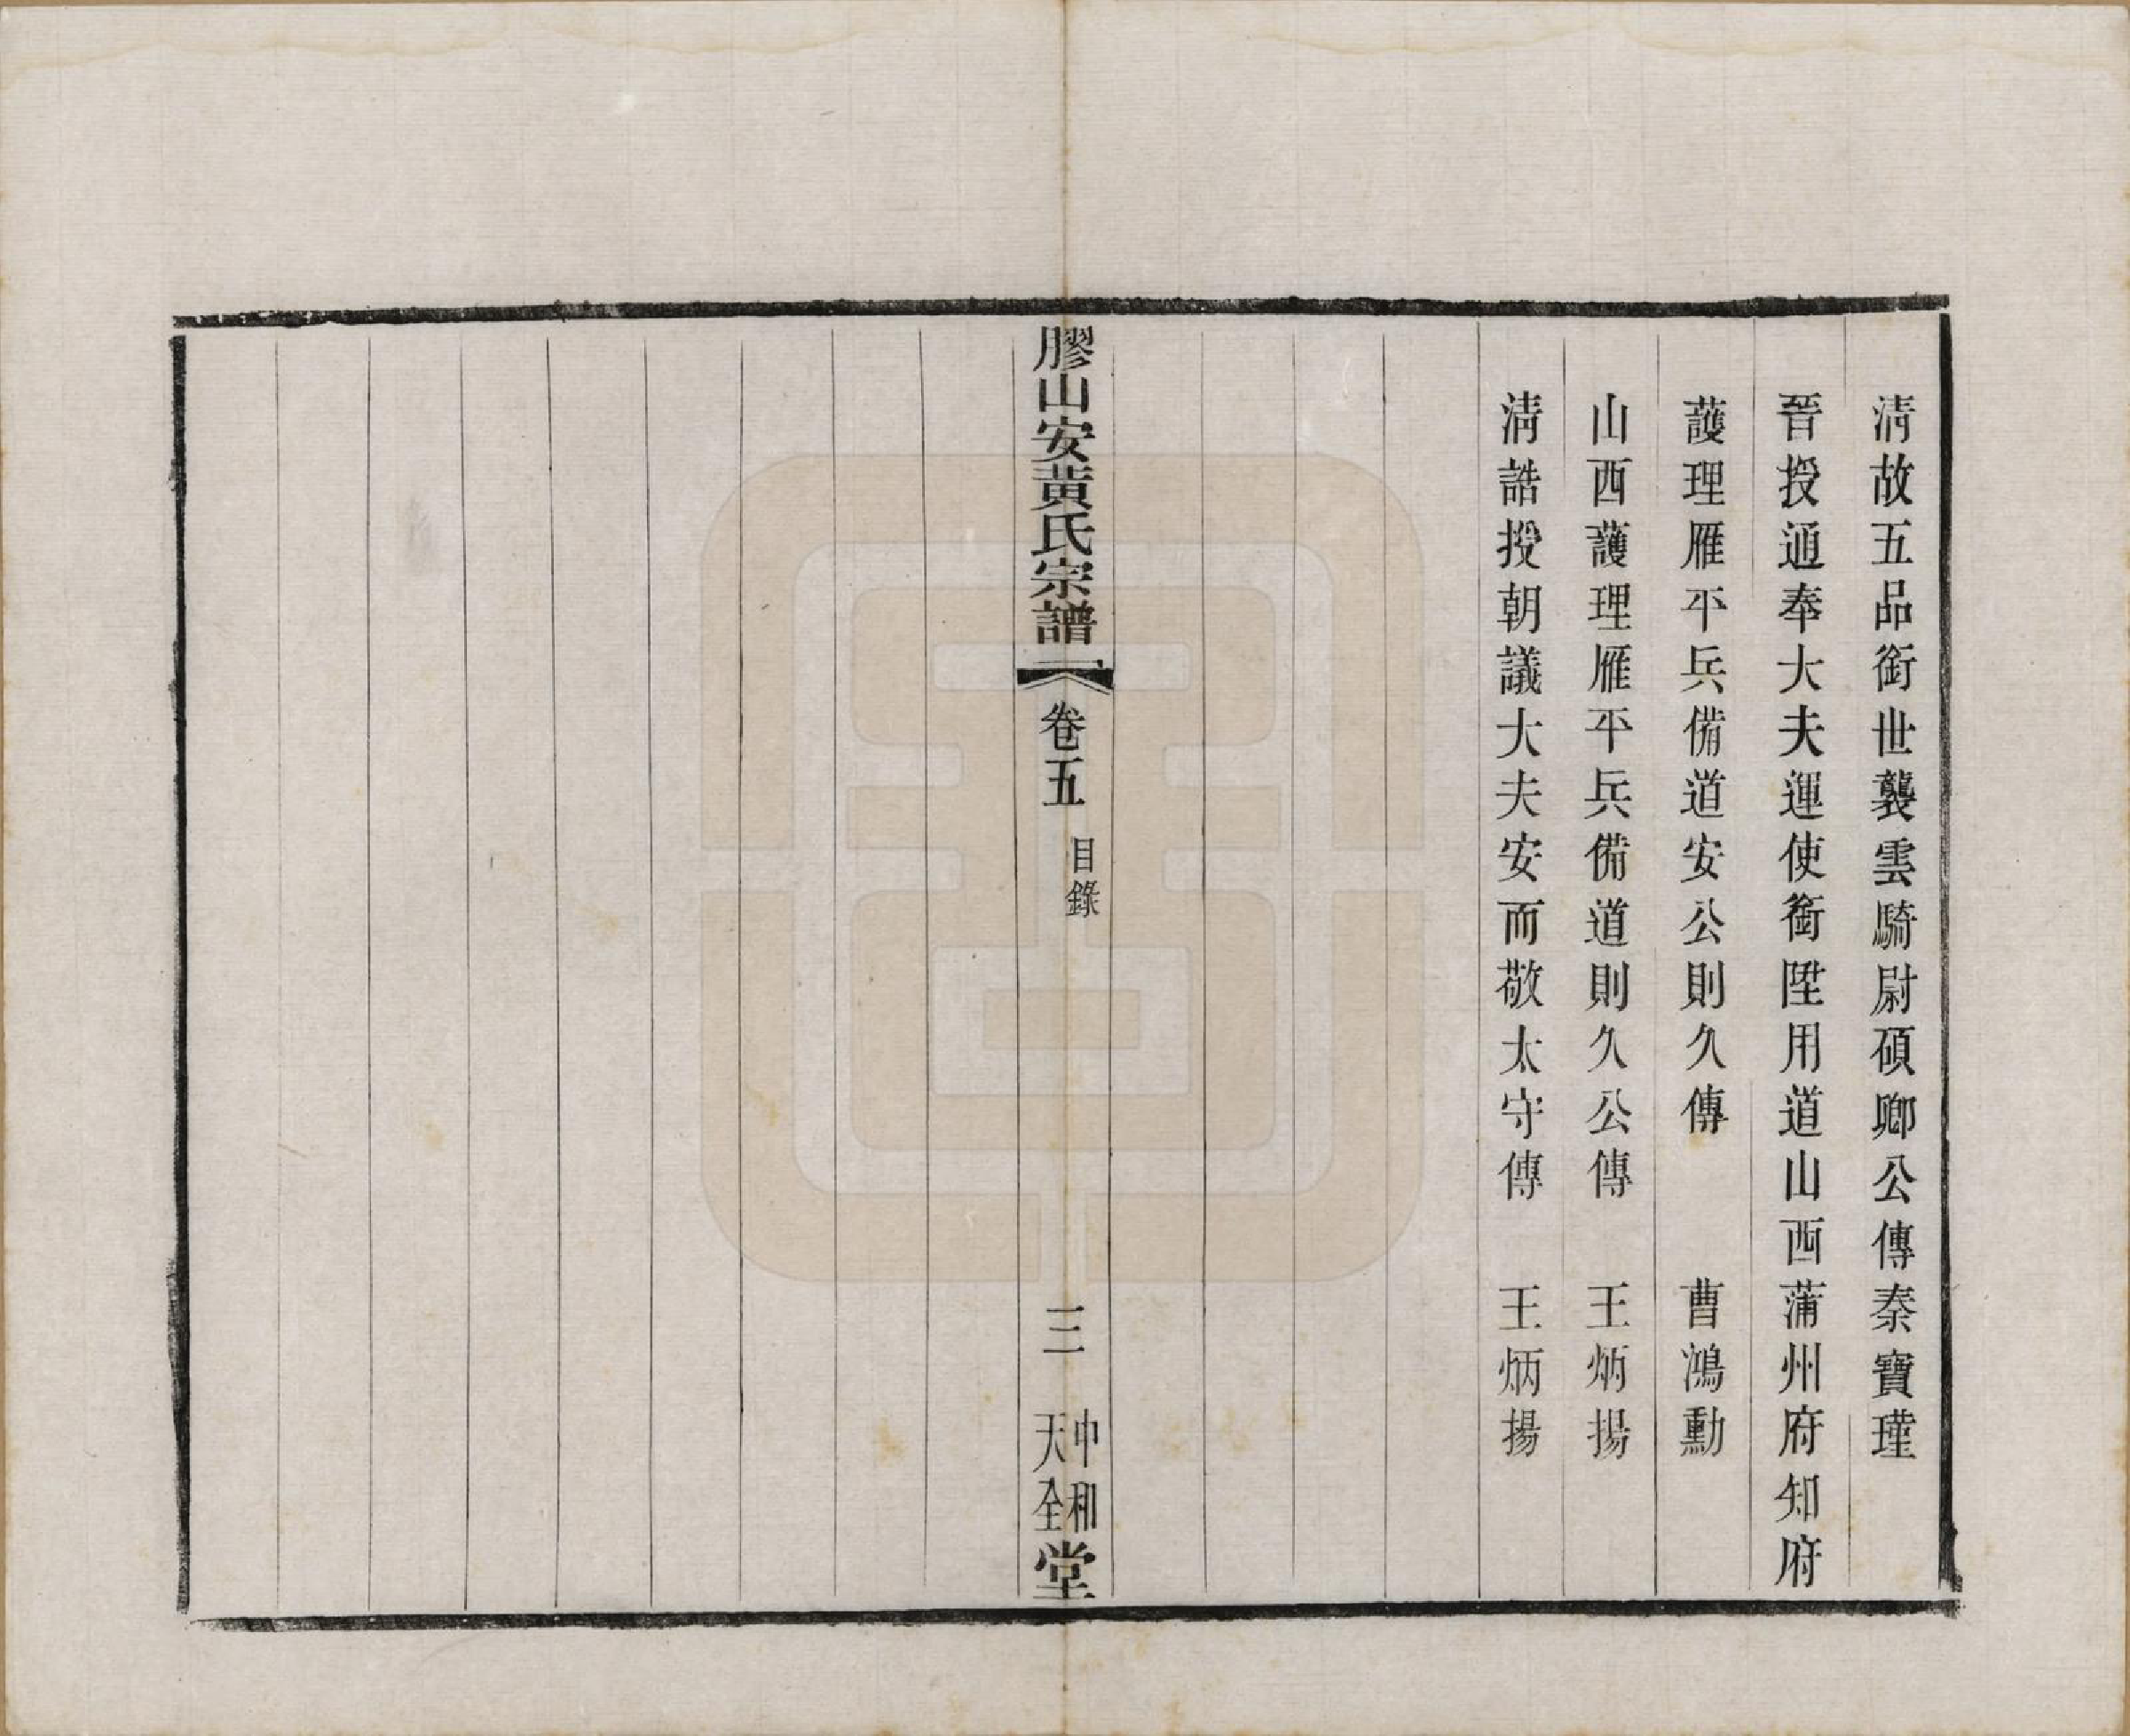 淸故五品銜世襲雲騎尉碩卿公傳秦寶瓘
晉授通奉大夫運使銜陞用道山西蒲州府知府
護理雁平兵備道安公則久傳　曹鴻勳
山西護理雁平兵備道則久公傳　王炳揚
淸誥授朝議大夫安而敬太守傳　王炳揚
膠山安黃氏宗譜　卷五　目錄　三　中和天全堂